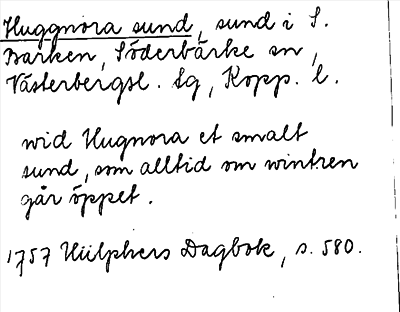 Huggnora sund, sund i S.
Barken, Söderbärke sn,
Västerbergsl. lg, Kopp. l.
wid Hugnora et smalt
sund, som alltid om wintren
går öppet.
1757 Hülphers Dagbok, s. 580.